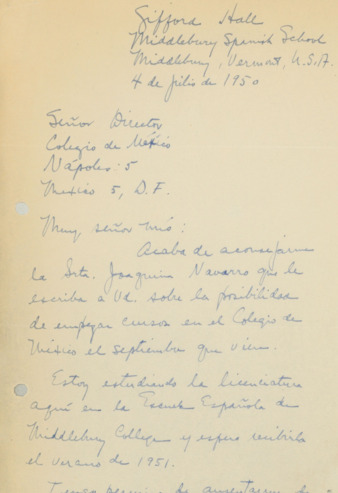 Gifford Hall
Middlebury Spanish School
Middlebury, Vermont, U.S.A.
4 de julio de 1950
Señor Director
Colegio de México
Nápoles 5
Mexico 5, D.F.
Muy señor mío:
Acaba de aconsejarme
la Srta. Joaquina Navarro que le
escriba a Ud. sobre la posibilidad
de empezar cursos en el Colegio de
México el septiembre que viene.
Estoy estudiando la licenciatura
aquí en la Escuela Española de
Middlebury College y espero recibirla
el verano de 1951.
Tengo permiso de ausentarme de